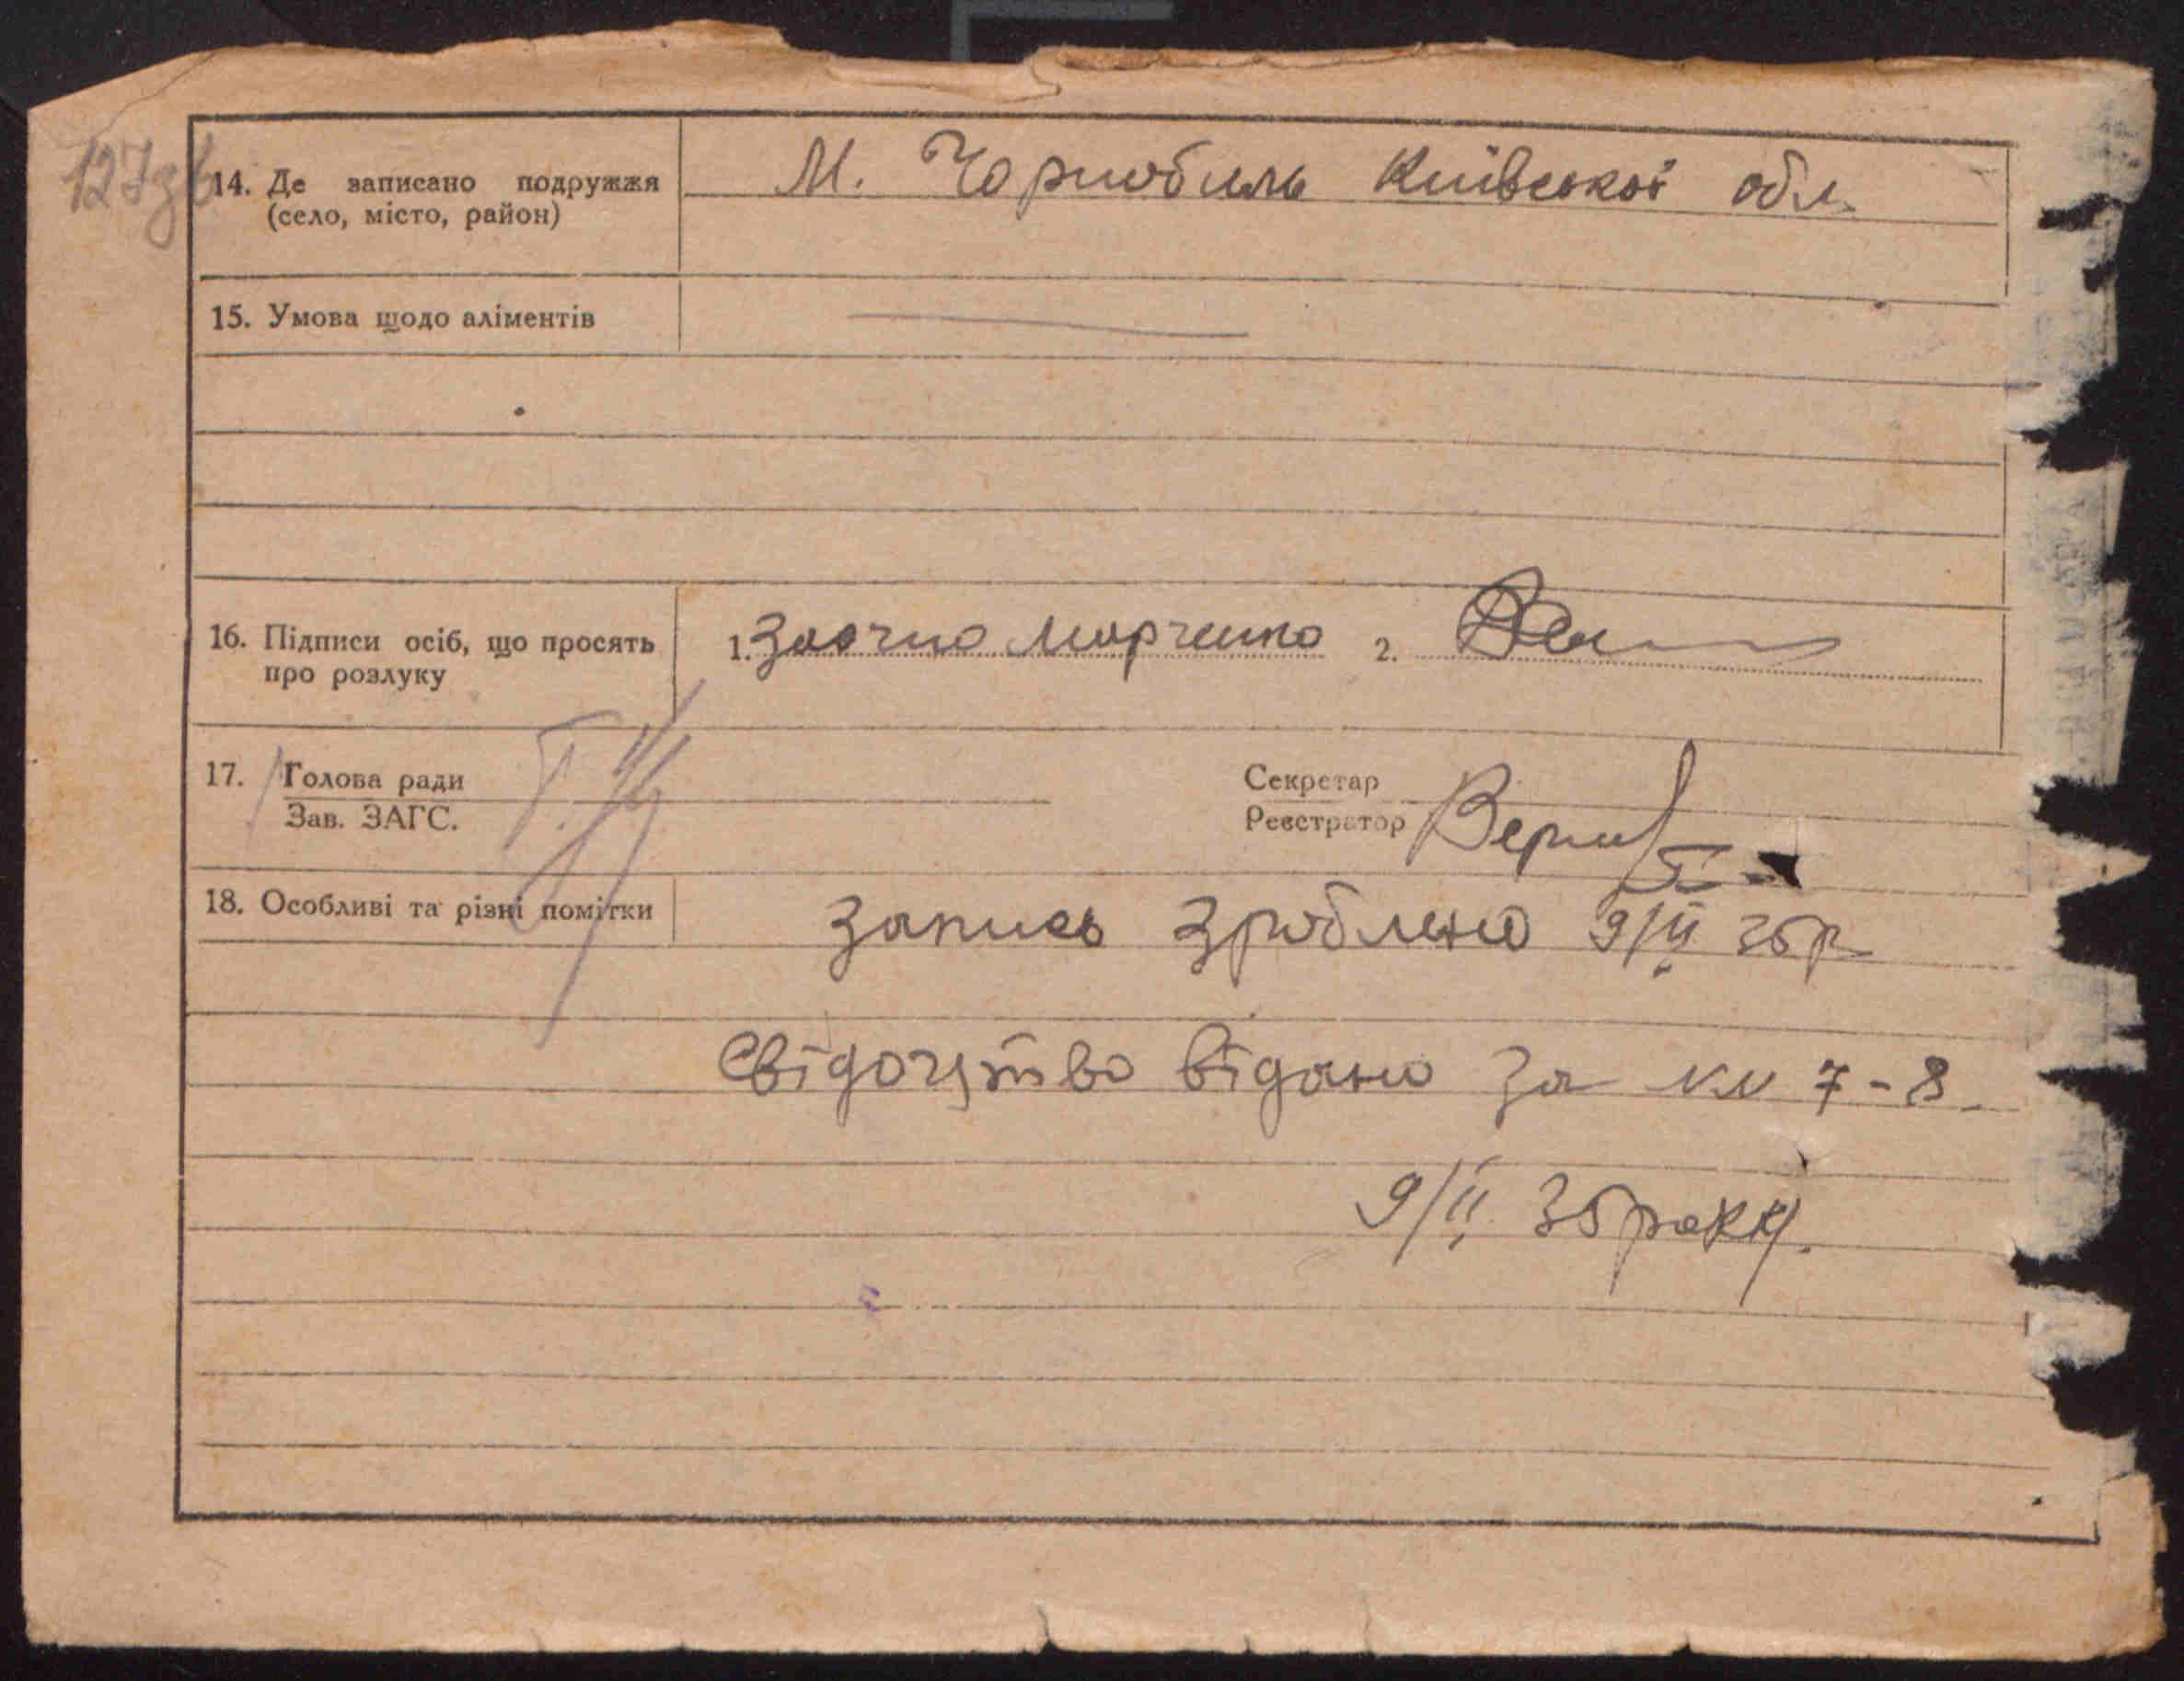 127зв
14. Де записано подружжя (село, місто, район)
М. Чорнобиль Київської обл.
15. Умова щодо аліментів
16. Підписи осіб, що просять про розлуку
1. Заочно Марченко 2.
17. Голова ради
Зав. ЗАГС.
Секретар
Реєстратор
18. Особливі та різні помітки
Запись зроблено 9/II 35р
Свідоцтво відано за № 7-8
9/II 35 року.